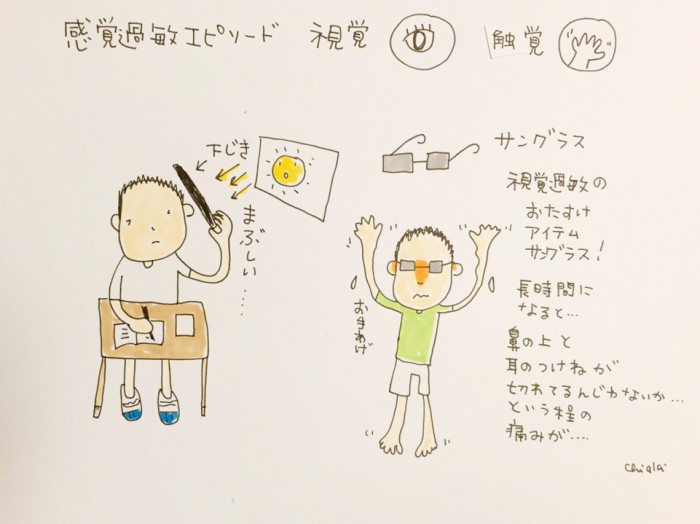 感覚過敏エピソード 視覚 触覚
下じき
まぶしい....
サングラス
視覚過敏の
おたすけ
アイテム
サングラス!
お手あげ
長時間に
なると...
鼻の上と
耳のつけねが
切れてるんじゃないか...
という程の
痛みが....
chialai